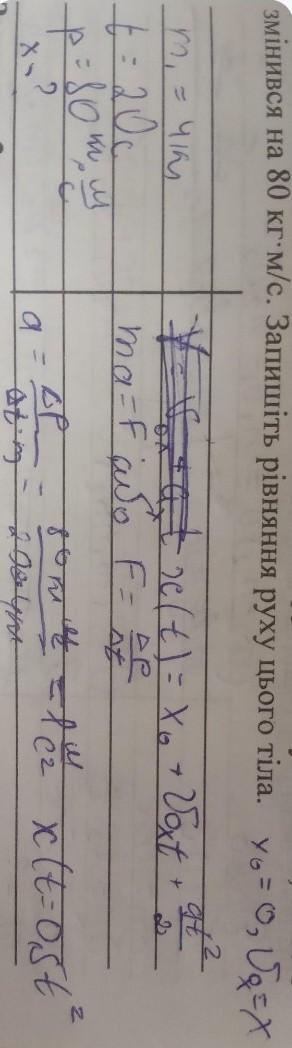 змінився на 80 кг·м/с. Запишіть рівняння руху цього тіла. x₀ = 0, V₀ₓ = x
m₁ = 4 кг
t = 20 с
p = 80 кг · м/с
x - ?
x(t) = x₀ + V₀ₓt + at²/2
ma = F або F = Δp/Δt
a = Δp/Δt·m = 80 кг м/с / 20с·4кг = 1 м/с² x(t = 0,5t²